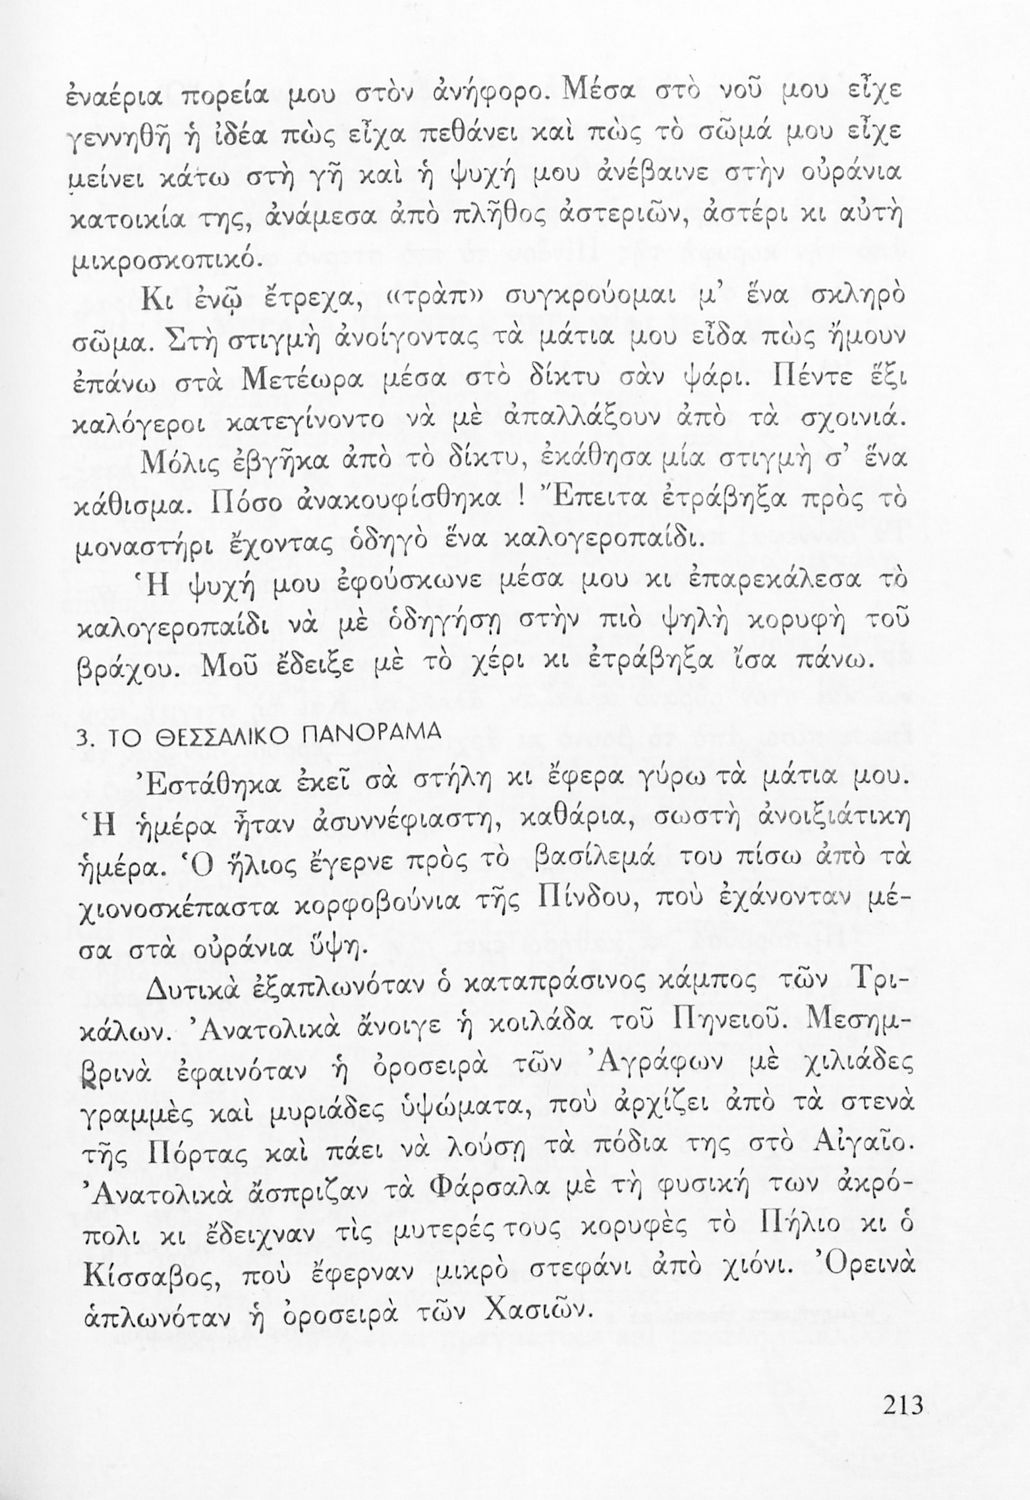 ἐναέρια πορεία μου στὸν ἀνήφορο. Μέσα στὸ νοῦ μου εἶχε
γεννηθῆ ἡ ἰδέα πὼς εἶχα πεθάνει καὶ πὼς τὸ σῶμά μου εἶχε
μείνει κάτω στὴ γῆ καὶ ἡ ψυχή μου ἀνέβαινε στὴν οὐράνια
κατοικία της, ἀνάμεσα ἀπὸ πλῆθος ἀστεριῶν, ἀστέρι κι αὐτὴ
μικροσκοπικό.
Κι ἐνῷ ἔτρεχα, «τρὰπ» συγκρούομαι μ’ ἕνα σκληρὸ
σῶμα. Στὴ στιγμὴ ἀνοίγοντας τὰ μάτια μου εἶδα πὼς ἤμουν
ἐπάνω στὰ Μετέωρα μέσα στὸ δίκτυ σὰν ψάρι. Πέντε ἕξι
καλόγεροι κατεγίνοντο νὰ μὲ ἀπαλλάξουν ἀπὸ τὰ σχοινιά.
Μόλις ἐβγῆκα ἀπὸ τὸ δίκτυ, ἐκάθησα μία στιγμὴ σ’ ἕνα
κάθισμα. Πόσο ἀνακουφίσθηκα ! Ἔπειτα ἐτράβηξα πρὸς τὸ
μοναστήρι ἔχοντας ὁδηγὸ ἕνα καλογεροπαίδι.
Ἡ ψυχή μου ἐφούσκωνε μέσα μου κι ἐπαρεκάλεσα τὸ
καλογεροπαίδι νὰ μὲ ὁδηγήσῃ στὴν πιὸ ψηλὴ κορυφὴ τοῦ
βράχου. Μοῦ ἔδειξε μὲ τὸ χέρι κι ἐτράβηξα ἴσα πάνω.
3. ΤΟ ΘΕΣΣΑΛΙΚΟ ΠΑΝΟΡΑΜΑ
Ἐστάθηκα ἐκεῖ σὰ στήλη κι ἔφερα γύρω τὰ μάτια μου.
Ἡ ἡμέρα ἦταν ἀσυννέφιαστη, καθάρια, σωστὴ ἀνοιξιάτικη
ἡμέρα. Ὁ ἥλιος ἔγερνε πρὸς τὸ βασίλεμά του πίσω ἀπὸ τὰ
χιονοσκέπαστα κορφοβούνια τῆς Πίνδου, ποὺ ἐχάνονταν μέ-
σα στὰ οὐράνια ὕψη.
Δυτικὰ ἐξαπλωνόταν ὁ καταπράσινος κάμπος τῶν Τρι-
κάλων. Ἀνατολικὰ ἄνοιγε ἡ κοιλάδα τοῦ Πηνειοῦ. Μεσημ-
βρινὰ ἐφαινόταν ἡ ὀροσειρὰ τῶν Ἀγράφων μὲ χιλιάδες
γραμμὲς καὶ μυριάδες ὑψώματα, ποὺ ἀρχίζει ἀπὸ τὰ στενὰ
τῆς Πόρτας καὶ πάει νὰ λούσῃ τὰ πόδια της στὸ Αἰγαῖο.
Ἀνατολικὰ ἄσπριζαν τὰ Φάρσαλα μὲ τὴ φυσική των ἀκρό-
πολι κι ἔδειχναν τὶς μυτερές τους κορυφὲς τὸ Πήλιο κι ὁ
Κίσσαβος, ποὺ ἔφερναν μικρὸ στεφάνι ἀπὸ χιόνι. Ὀρεινὰ
ἁπλωνόταν ἡ ὀροσειρὰ τῶν Χασιῶν.
213